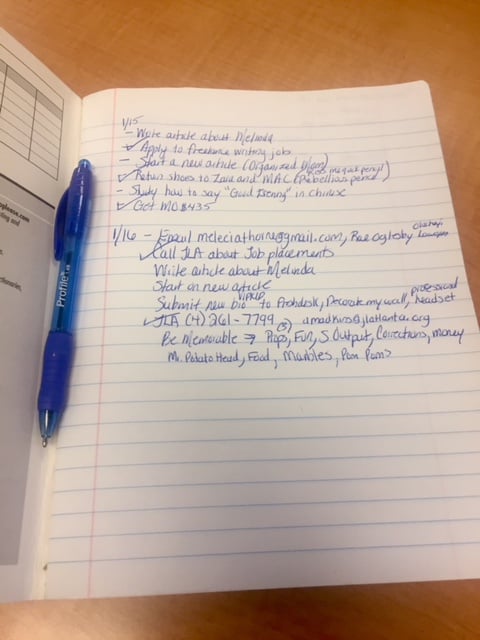 1/15
- Write article about Melinda
✓ Apply to freelance writing job
- Start a new article (Organized Mom)
✓ Return shoes to Zara and MAC (Rebellious pencil)
- Study how to say "Good Evening" in Chinese
✓ Get MO $435
1/16 - Email meleciathorne@gmail.com, Rae Oglesby
✓ Call JLA about Job placements
Write article about Melinda
Start on new article
Submit new bio to Archdesk, Decorate my wall, professional headset
VIPKID
✓ JLA (4) 261-7799 (3) amadkins@jlatlanta.org
Be Memorable → Props, Fun, S. Output, Corrections, money
Mr. Potato Head, Food, Marbles, Pom Poms
Profile
please.com
ting and
tionaries,